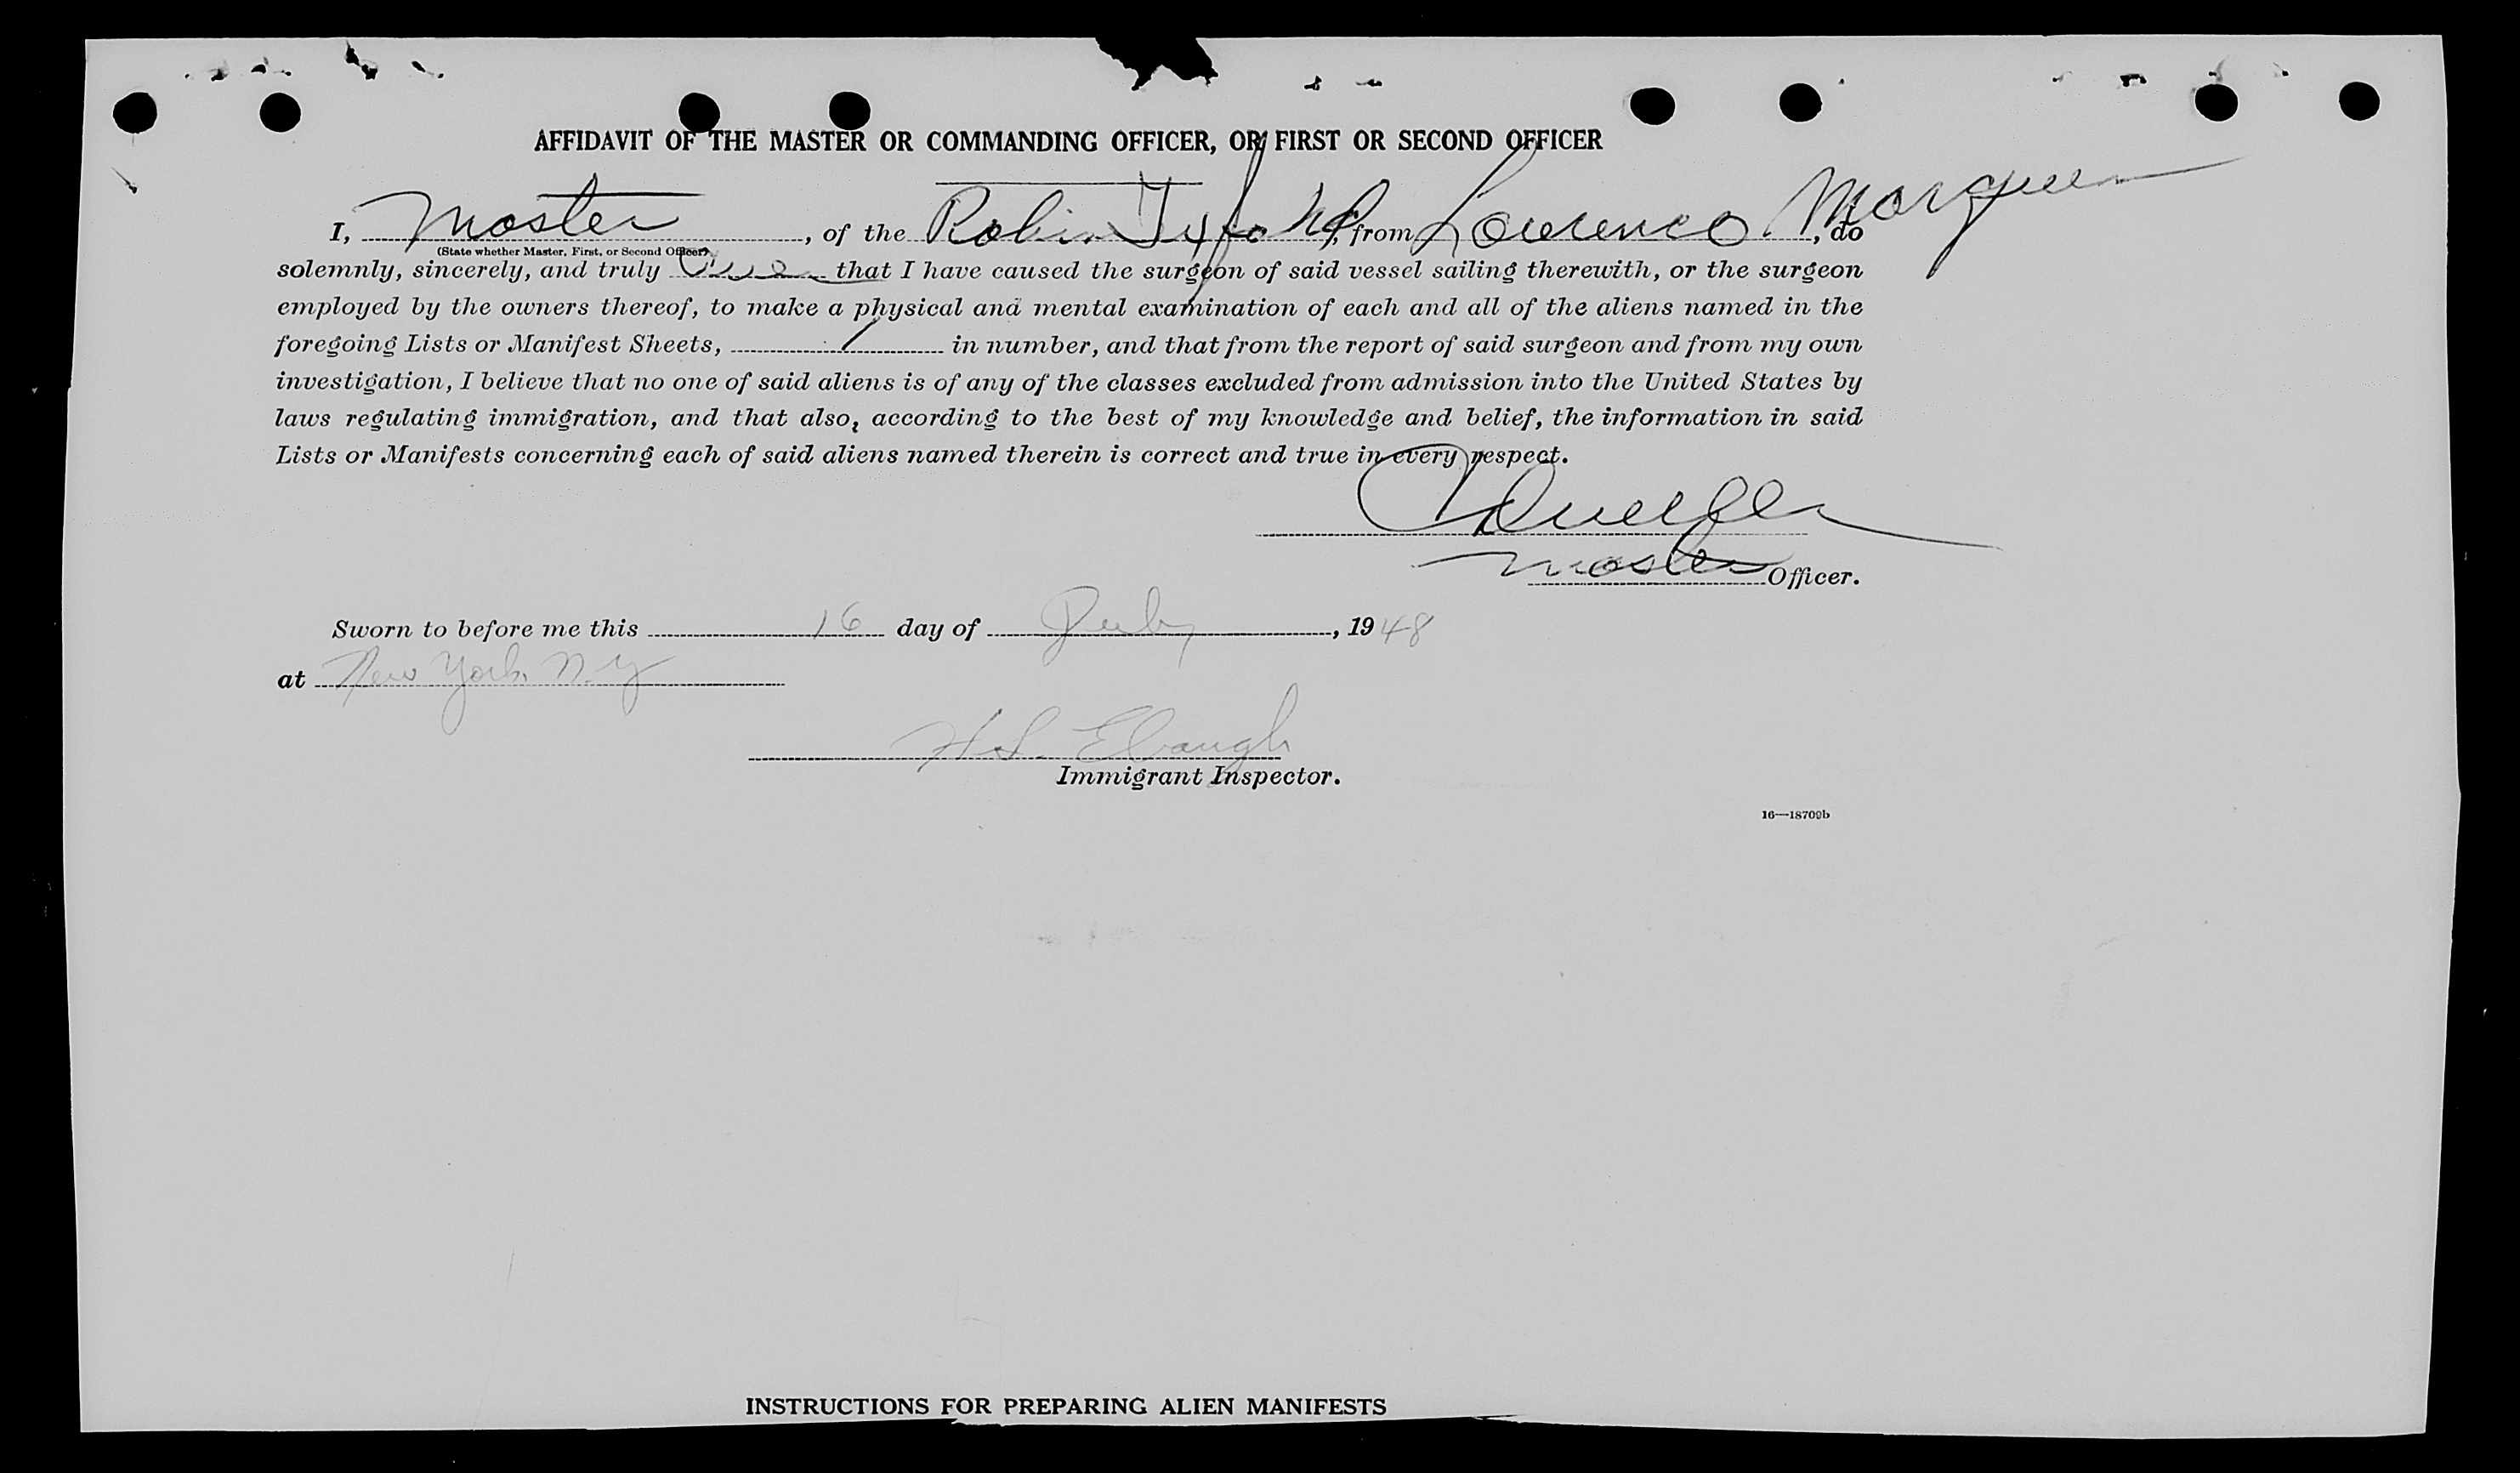 AFFIDAVIT OF THE MASTER OR COMMANDING OFFICER, OR FIRST OR SECOND OFFICER
I, Master, of the Robin Tuxford, from Lourenco Marques, do
(State whether Master, First, or Second Officer)
solemnly, sincerely, and truly that I have caused the surgeon of said vessel sailing therewith, or the surgeon
employed by the owners thereof, to make a physical and mental examination of each and all of the aliens named in the
foregoing Lists or Manifest Sheets, 1 in number, and that from the report of said surgeon and from my own
investigation, I believe that no one of said aliens is of any of the classes excluded from admission into the United States by
laws regulating immigration, and that also, according to the best of my knowledge and belief, the information in said
Lists or Manifests concerning each of said aliens named therein is correct and true in every respect.
Master Officer.
Sworn to before me this 16 day of July, 1948
at New York N.Y
H.L. Ebaugh
Immigrant Inspector.
16—18709b
INSTRUCTIONS FOR PREPARING ALIEN MANIFESTS